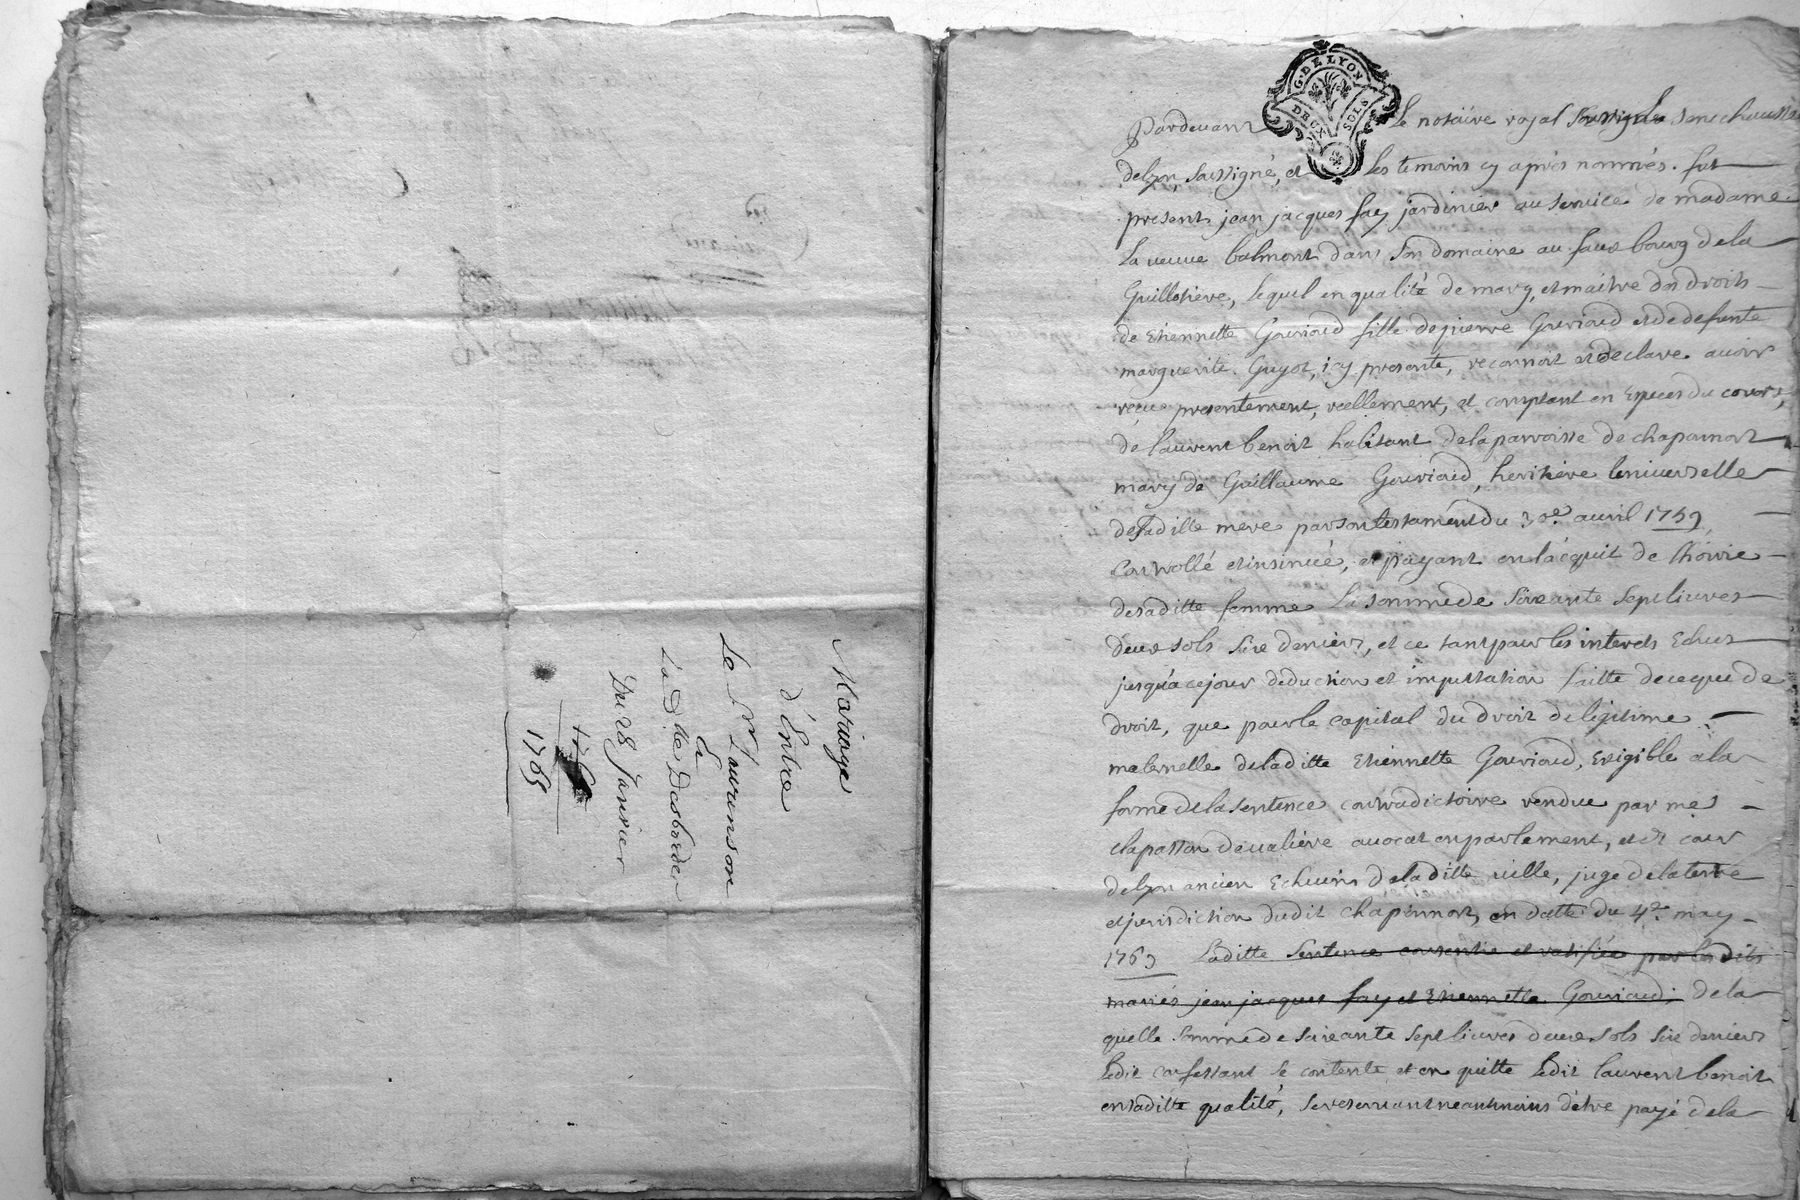 Mariage
d'Entre
Le Sr. Laurenson
&
La Dlle Desbordes
Du 28 Janvier
1765
G. DE LYON
DEUX SOLS
Pardevant le notaire royal
delyon, soussigné, et les temoins cy après nommés. fut
present jean jacques fay jardinier au service de madame
La veuve balmont dans son domaine au faux bourg dela
Guillotiere, lequel en qualité de mary, et maitre des droits
de Etiennette Gouriaud fille de pierre Gouriaud et de defunte
marguerite Guyot, icy presente, reconnoit et declare avoir
reçu presentement, reellement, et comptant en Especes du cours,
de laurent benoit habitant dela parroisse de chaponnost
mary de Guillaume Gouriaud, heritiere Universelle
deladitte mere par son testament du 30e. avril 1759
controllé et insinué, et payant en l'acquit de l'hoirie
desaditte femme La somme de soixante sept livres
deux sols six deniers, et ce tant pour les interets Echus
jusqu'a cejour deduction et imputation faitte de ce que de
droit, que pour le capital du droit de légitime
maternelle deladitte Etiennette Gouriaud, Exigible a la
forme dela sentence contradictoire rendue par me
clapasson devaliere avocat en parlement, et Es cours
delyon ancien Echevin deladitte ville, juge dela terre
et jurisdiction dudit chaponnost, en datte du 4e. may
1763 Laditte sentence consentie et ratifiée par lesdits
mariés jean jacques fay et Etiennette Gouriaud; de la
quelle somme de soixante sept livres deux sols six deniers
Ledit confessant se contente, et en quitte Ledit laurent benoit
en saditte qualité, se reservant neantmoins d'etre payé dela